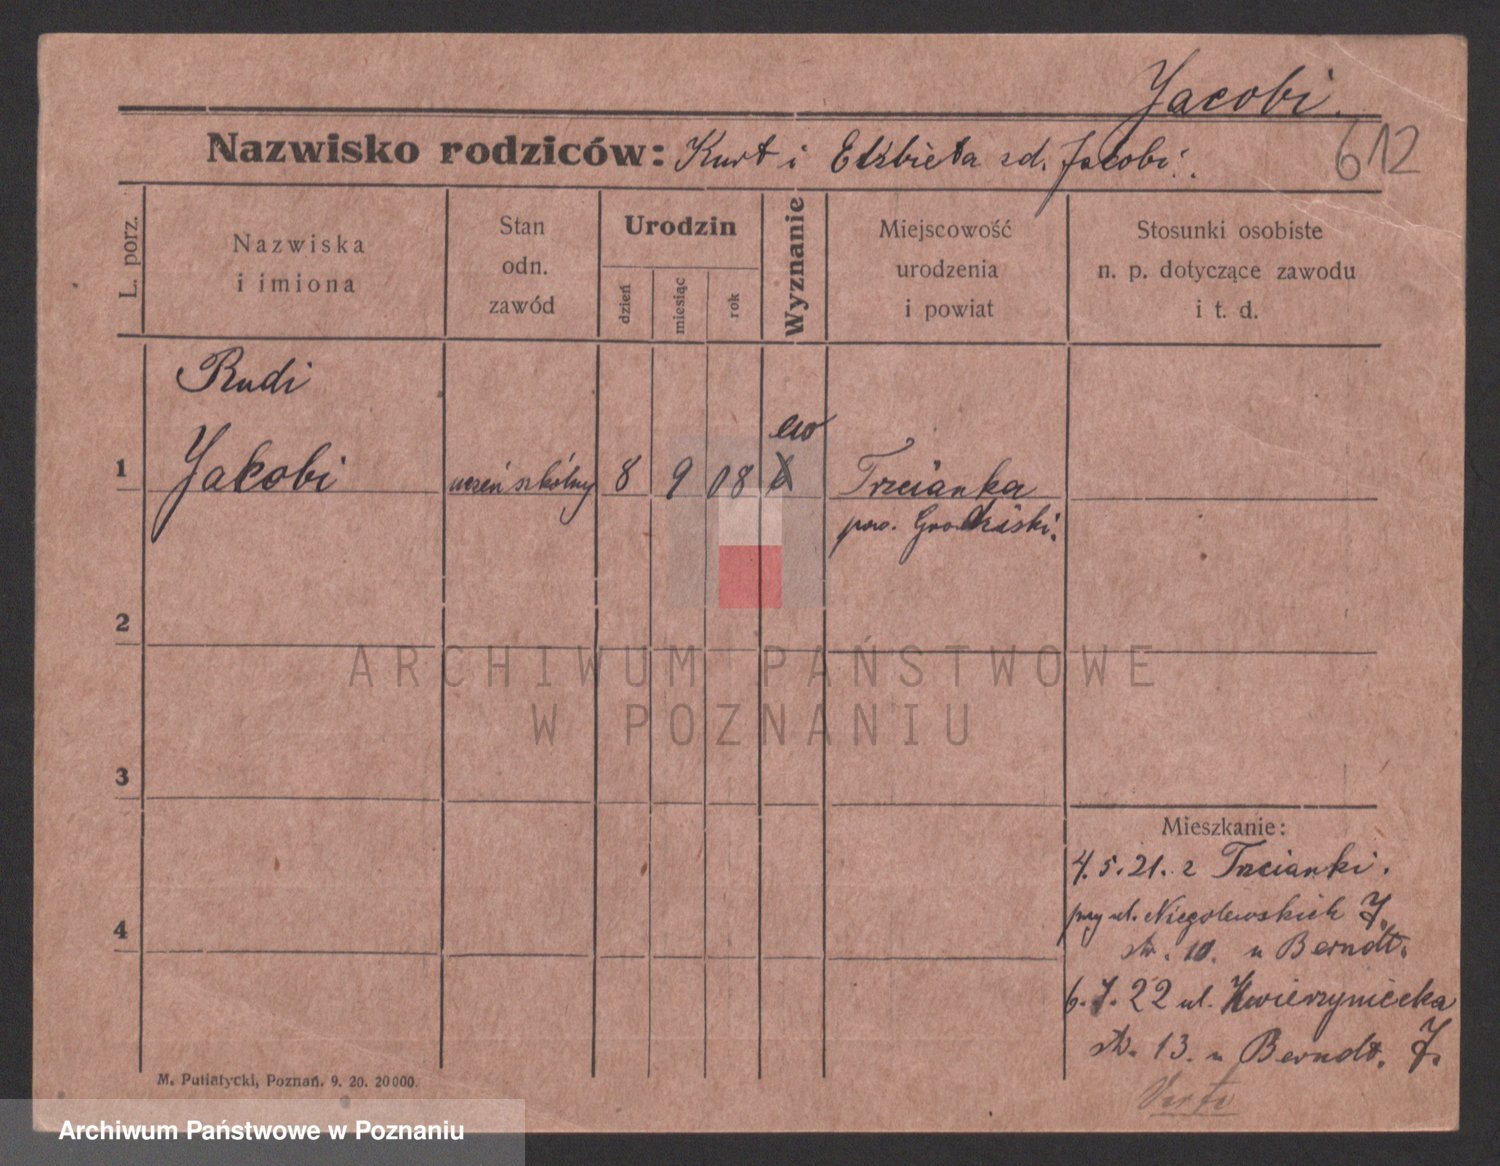 Jacobi.
Nazwisko rodziców: Kurt i Elżbieta zd. Jacobi.
612
L. porz.
Nazwiska
i imiona
Stan
odn.
zawód
Urodzin
dzień
miesiąc
rok
Wyznanie
Miejscowość
urodzenia
i powiat
Stosunki osobiste
n. p. dotyczące zawodu
i t. d.
Rudi
ew
1 Jakobi uczeń szkólny 8 9 08 Trzcianka
pow. Grodziski.
2
ARCHIWUM PAŃSTWOWE
W POZNANIU
3
Mieszkanie:
4.5.21. z Trzcianki.
przy ul. Niegolewskich J.
4
str. 10. u Berndt.
6.7.22 ul. Zwierzyniecka
str. 13. u Berndt. J.
M. Putiatycki, Poznań. 9. 20. 20000.
Verte
Archiwum Państwowe w Poznaniu